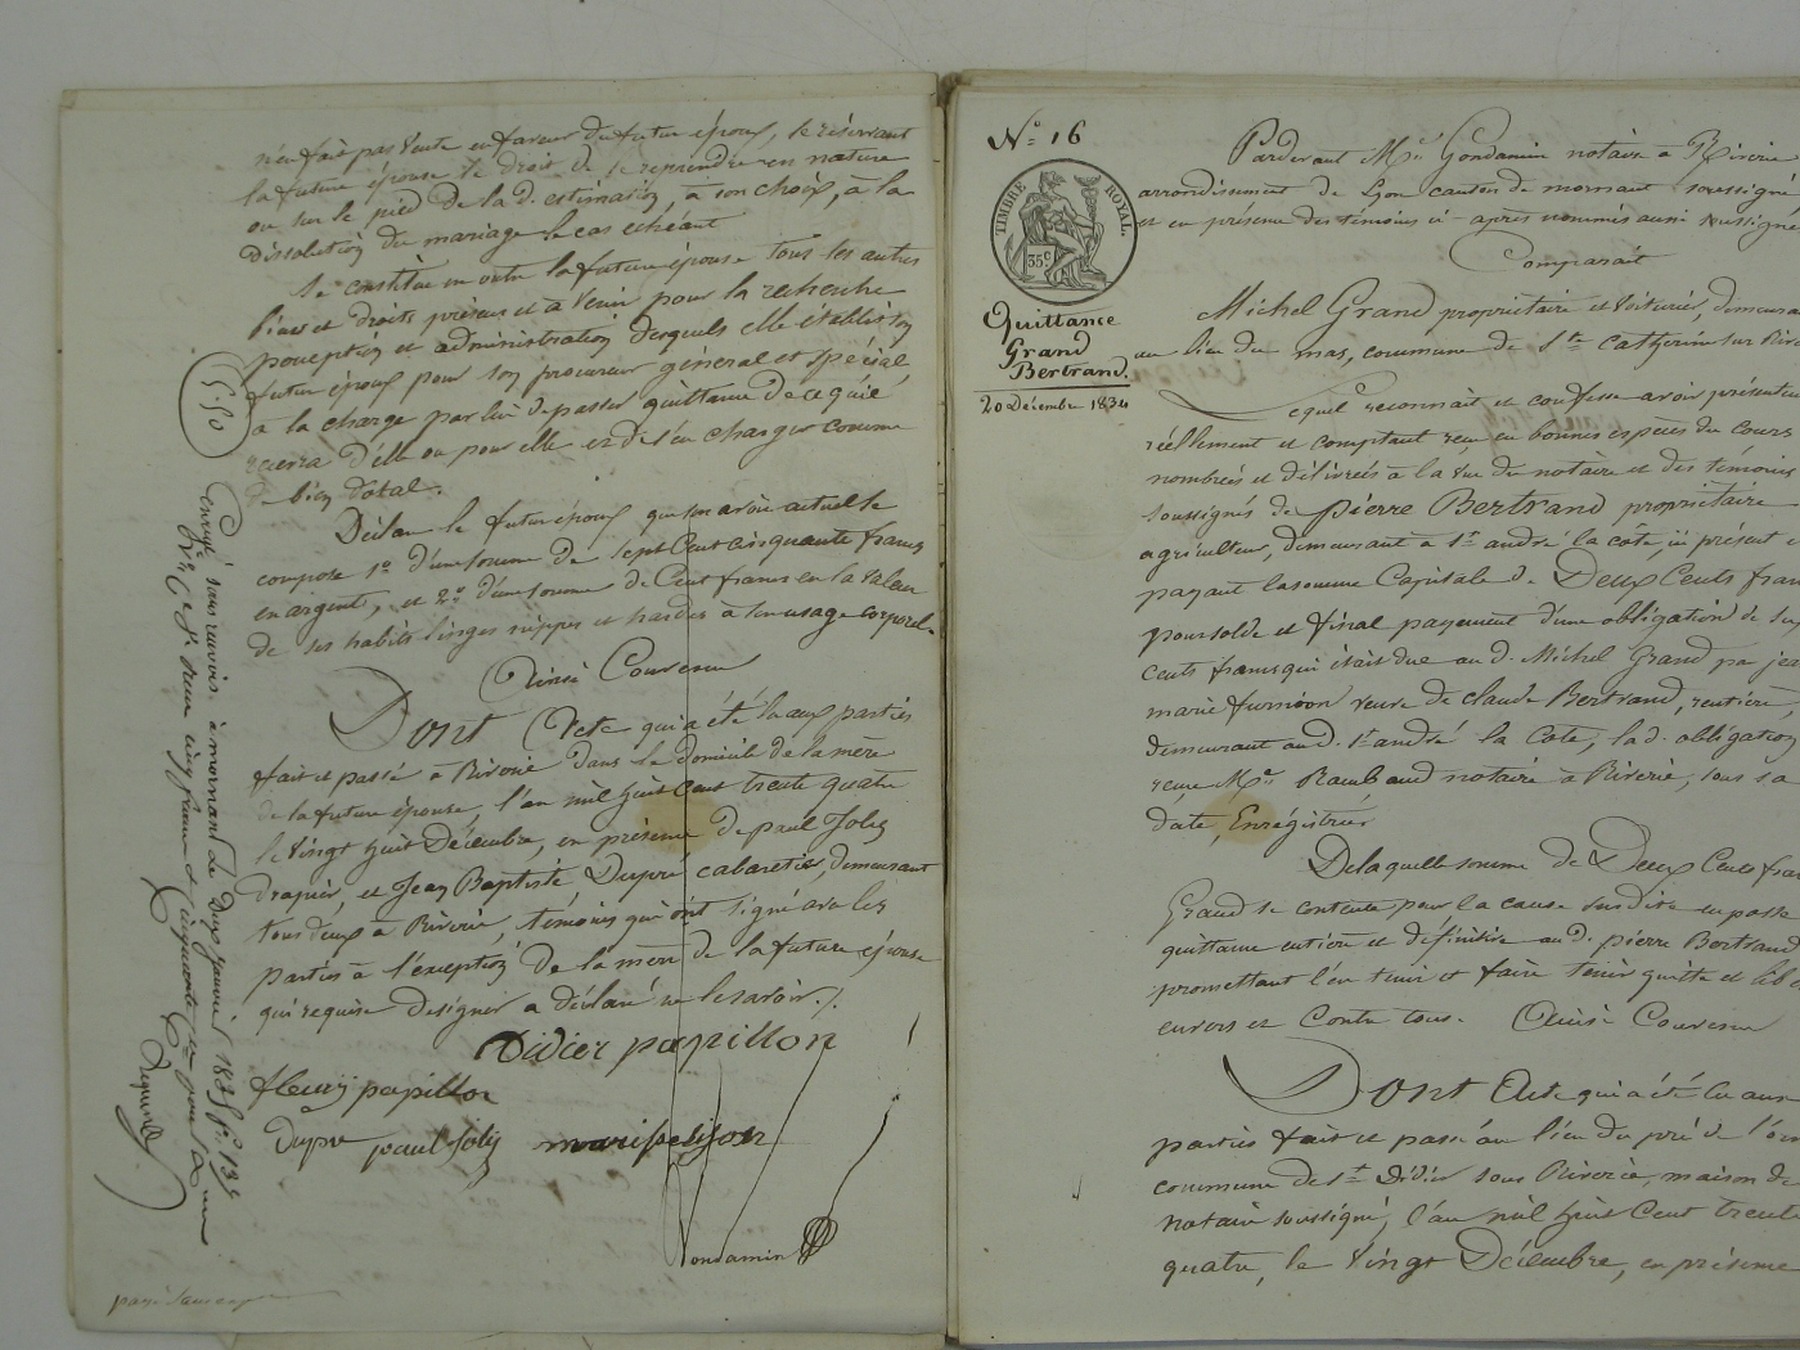 n'en fait pas vente en faveur du futur époux, se réservant
la future épouse le droit de le reprendre en nature
ou sur le pied de la d. estimation, à son choix, à la
dissolution du mariage le cas échéant
Se constitue en outre la future épouse tous les autres
biens et droits présens et à venir pour la recherche
perception et administration desquels elle établit son
futur époux pour son procureur général et spécial,
à la charge par lui de passer quittance de ce qu'il
recevra d'elle ou pour elle et de s'en charger comme
de bien dotal.
Déclare le futur époux que son avoir actuel se
compose 1o d'une somme de sept cent cinquante francs
en argent, et 2o d'une somme de Cent francs en la valeur
de ses habits linges nippes et hardes à son usage corporel.
Ainsi Convenu
Dont Acte qui a été lu aux parties
fait et passé à Riverie dans le domicile de la mère
de la future épouse, l'an mil huit cent trente quatre
le vingt huit Décembre, en présence de paul Joly
drapier, et Jean Baptiste Dupré cabaretier, demeurant
tous deux à Riverie, témoins qui ont signé avec les
parties à l'exception de la mère de la future épouse
qui requise de signer a déclaré ne le savoir ./.
Didier papillon
fleury papillon
Dupre paul Joly
Gondamin
5.50
Enregé sans renvois à mornant le deux janvier 1835 fo. 139
Vo. Ce. 5. reçu cinq francs et cinquante
No. 16
TIMBRE ROYAL.
35c.
Quittance
Grand
Bertrand.
20 Décembre 1834
Pardevant Me. Gondamin notaire à Riverie
arrondissement de Lyon canton de mornant soussigné,
et en présence des témoins ci-après nommés aussi soussignés
Comparait
Michel Grand propriétaire et voiturier, demeura
au lieu du mas, commune de Ste catherine sur Rive
Lequel reconnait et confesse avoir présentem
réellement et comptant reçu en bonnes espèces du cours
nombrées et délivrées à la vue du notaire et des témoins
soussignés de pierre Bertrand propriétaire
agriculteur, demeurant à St. andré la côte, ici présent e
payant la somme Capitale de Deux Cents fran
pour solde et final payement d'une obligation de six
cents francs qui était due au d. Michel Grand par jea
marie furnion veuve de claude Bertrand, rentière,
demeurant au d. St. andré la Côte, la d. obligation
reçue Me. Raimbaud notaire à Riverie, sous sa
date, Enrégistrée
De laquelle somme de Deux Cents fran
Grand se contente pour la cause susdite en passe
quittance entière et définitive au d. pierre Bertrand
promettant l'en tenir et faire tenir quitte et libe
envers et Contre tous. Ainsi Convenu
Dont Acte qui a été lu aux
parties fait et passé au lieu du pré de l'or
commune de St. Didier sous Riverie, maison de
notaire soussigné, l'an mil huit Cent trente
quatre, le vingt Décembre, en présence